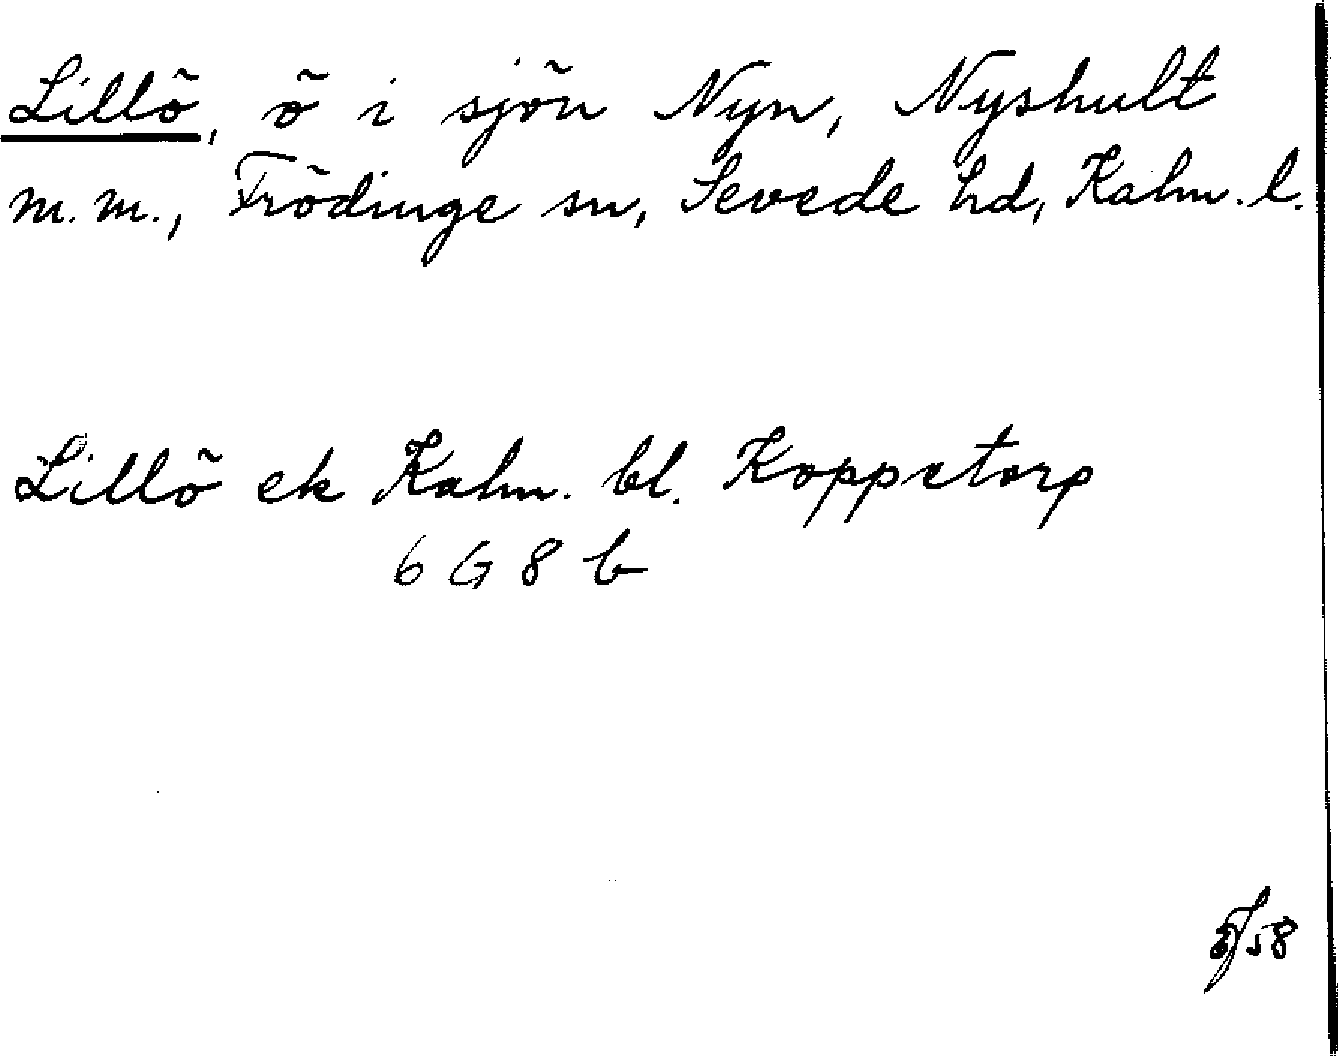 Lillö, ö i sjön Nyn, Nyshult
m.m., Frödinge sn, Sevede hd, Kalm. l.
Lillö ek Kalm. bl. Koppetorp
6 G 8 b
58